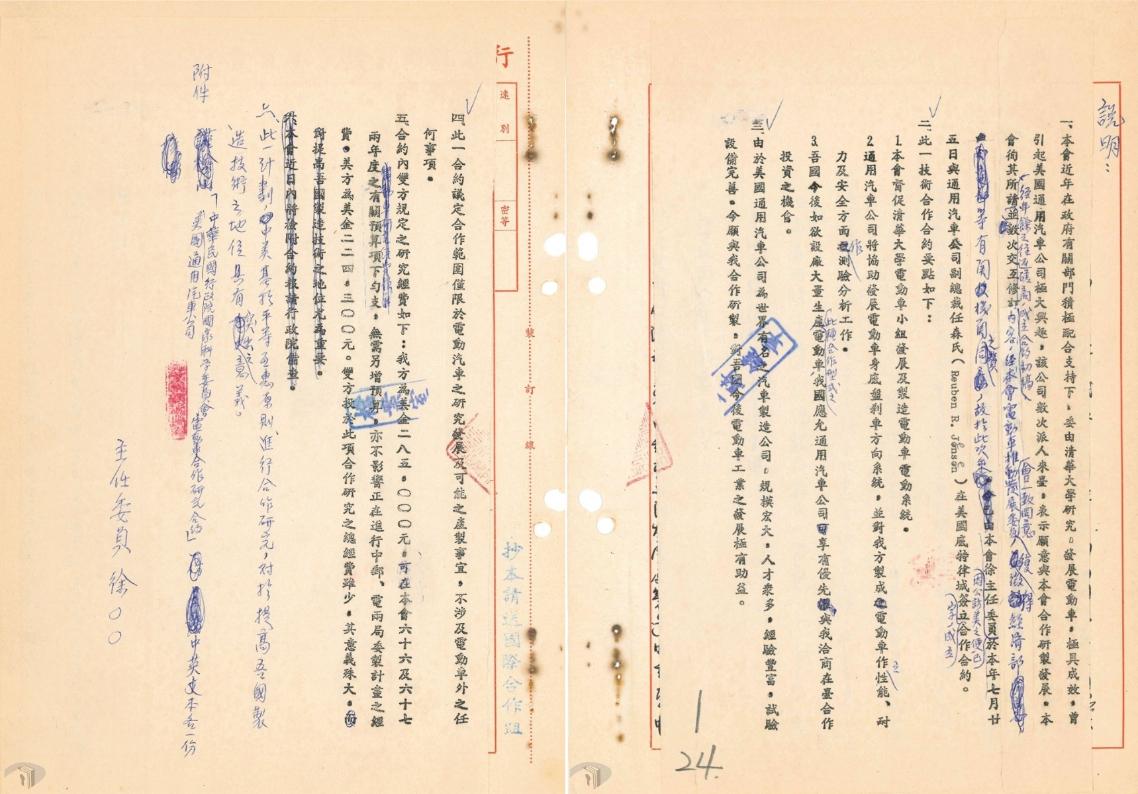 說明：
一、本會近年在政府有關部門積極配合支持下，委由清華大學研究發展電動車，極具成效，曾
引起美國通用汽車公司極大興趣，該公司數次派人來臺，表示願意與本會合作研製發展。本
會徇其所請並數次交互修訂內容，經本會電動車推動發展委員會一致同意
等有關機關同意，故於此次
由本會徐主任委員於本年七月廿
五日與通用汽車公司副總裁任森氏（Reuben R. Jensen）在美國底特律城簽立合作合約。
二、此一技術合作合約要點如下：
1.本會督促清華大學電動車小組發展及製造電動車電動系統。
2.通用汽車公司將協助發展電動車身底盤剎車方向系統，並對我方製成之電動車作性能、耐
力及安全方面作測驗分析工作。
3.吾國今後如欲設廠大量生產此種合作型式之電動車，我國應允通用汽車公司享有優先與我洽商在臺合作
投資之機會。
三、由於美國通用汽車公司為世界有名之汽車製造公司，規模宏大，人才眾多，經驗豐富，試驗
設備完善。今願與我合作研製，對吾國今後電動車工業之發展極有助益。
1
24.
行
速別
密等
裝
訂
線
抄本請送國際合作組
四、此一合約議定合作範圍僅限於電動汽車之研究發展及可能之產製事宜，不涉及電動車外之任
何事項。
五、合約內雙方規定之研究經費如下：我方為美金二八五，〇〇〇元，可在本會六十六及六十七
兩年度之有關預算項下勻支，無需另增預算，亦不影響正在進行中郵、電兩局委製計畫之經
費。美方為美金二二四，三〇〇元。雙方投於此項合作研究之總經費雖少，其意義殊大，
對提高吾國製造技術之地位尤為重要。
本會近日內將檢附合約報請行政院備查。
六、此一計劃，中美基於平等互惠原則，進行合作研究，對於提高吾國製
造技術之地位具有特殊之意義。
附件
「中華民國行政院國家科學委員會
美國通用汽車公司
電動車合作研究合約」中英文本各一份
主任委員 徐〇〇